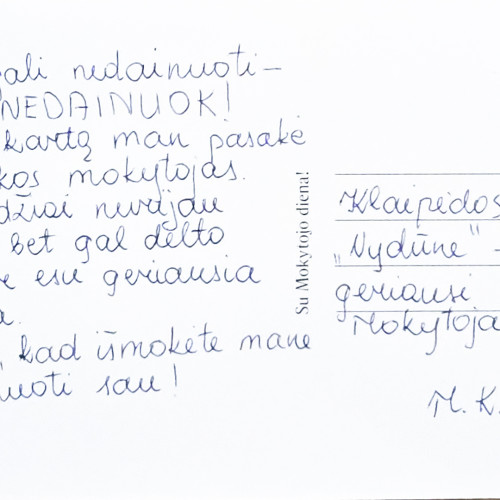 gali nedainuoti –
NEDAINUOK!
kartą man pasakė
kos mokytojas.
džiai nurijau
bet gal dėlto
esu geriausia
a.
, kad išmokėte mane
uoti sau!
Su Mokytojo diena!
Klaipėdos
„Vydūne“ –
geriausi
Mokytoja
M. K.